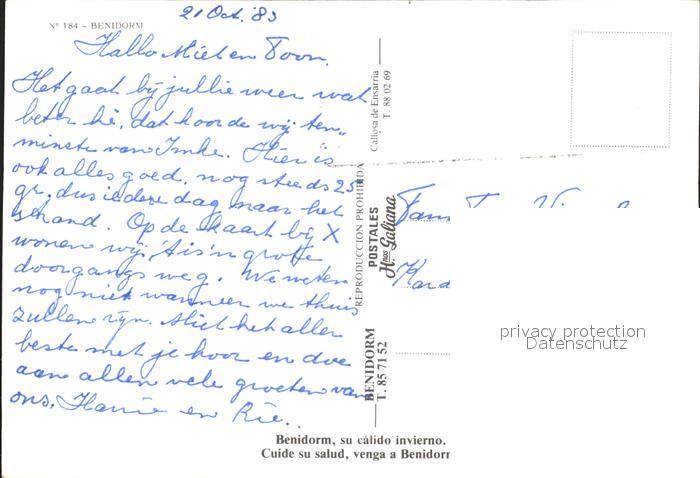 21 Oct. '83
Nº 184 - BENIDORM
Hallo Miet en Toon.
Het gaat bij jullie weer wat
beter hè, dat hoorde wij ten„
minste van Imke. Hier is
ook alles goed, nog steeds 25
gr. dus iedere dag naar het
strand. Op de kaart bij X
wonen wij, 't is 'n grote
doorgangsweg. We weten
nog niet wanneer we thuis
zullen zijn. Miet het aller
beste met je hoor en doe
aan allen vele groeten van
ons, Harrie en Rie..
Callosa de Ensarria
T. 88 02 69
REPRODUCCION PROHIBIDA
POSTALES
Hnos Galiana
BENIDORM
T. 85 71 52
Fam
privacy protection
Datenschutz
Benidorm, su cálido invierno.
Cuide su salud, venga a Benidorm